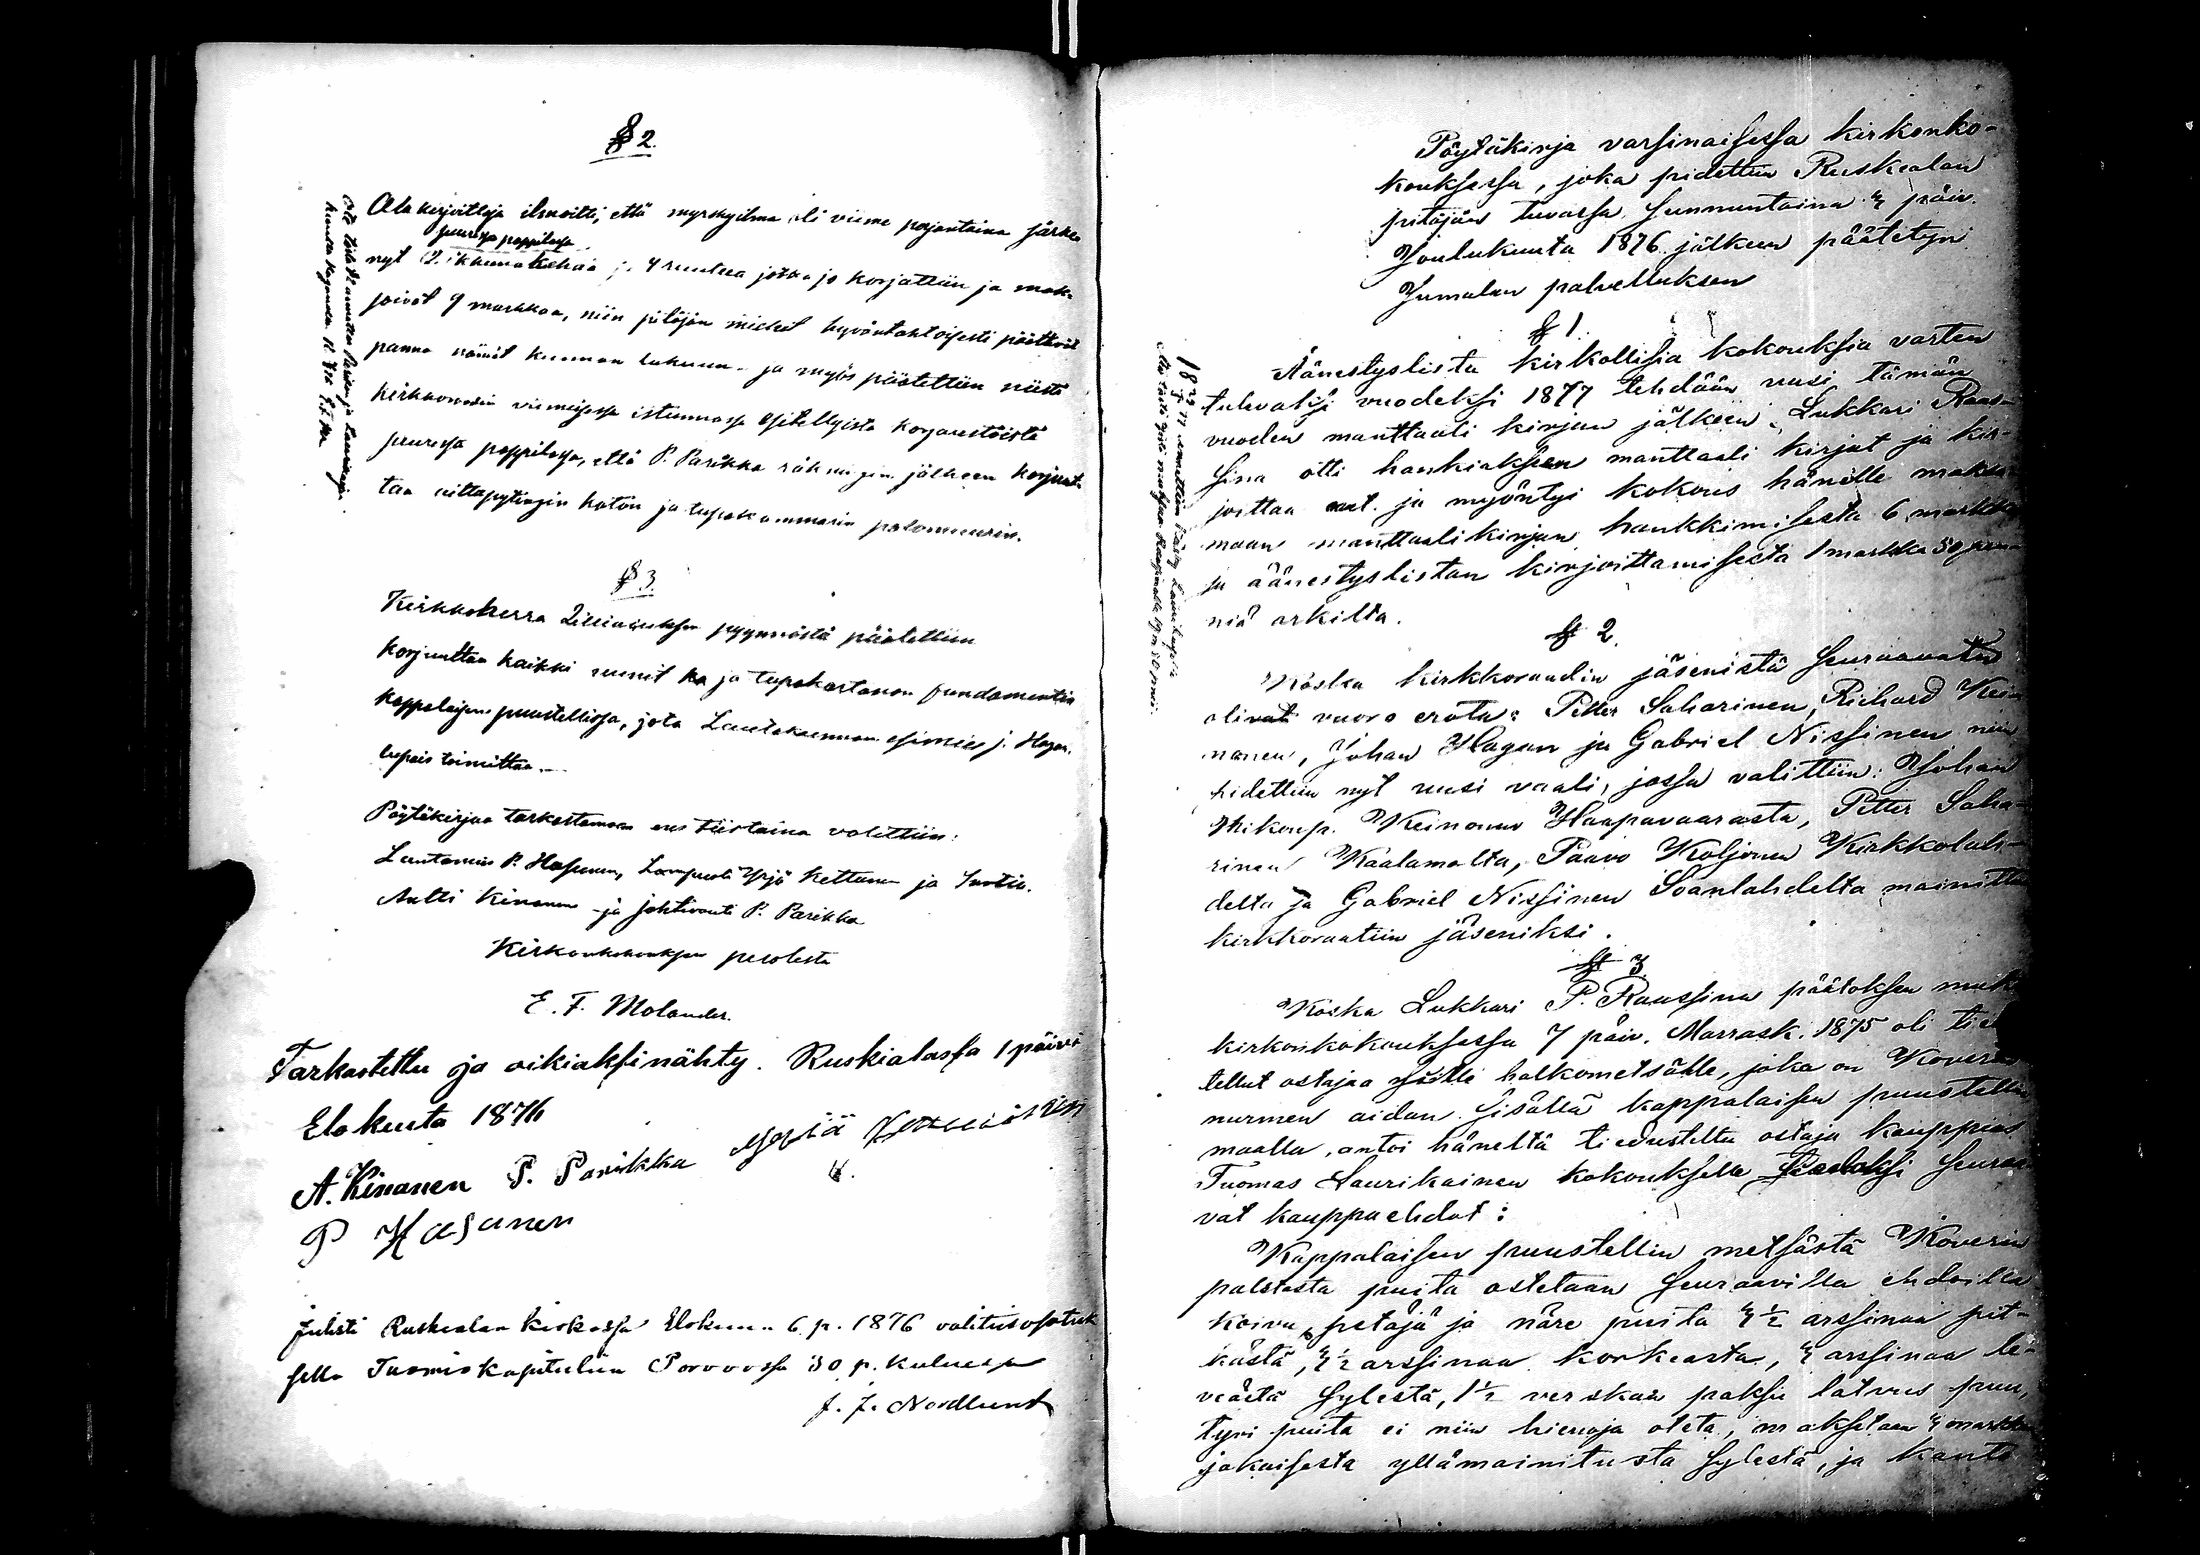 § 2.
Alakirjoittaja ilmoitti, että myrskyilma oli viime perjantaina särke-
suuressa pappilassa
nyt 2 ikkunakehää ja 4 ruutua jotka jo korjattiin ja mak-
soivat 9 markkaa, niin pitäjän miehet hyväntahtoisesti päättivät
panna nämät kunnan lukuun. ja myös päätettiin niistä
kirkkoraadin viimeisessä istunnossa esitellyistä korjauksista
suuressa pappilassa, että P. Parikka jälkeen korjaut-
taa katon ja tupakammarin palomuurin.
§ 3.
Kirkkoherra pyynnöstä päätettiin
korjuuttaa kaikki uunit ka ja tupakartanon fundamentin
kappalaisen puustellissa, jota Lautakunnan esimies J. Hagan.
lupais toimittaa.
Pöytäkirjaa tarkastamaan ens tiistaina valittiin:
Lautamies P. Hasunen, Yrjö Kettunen ja
Antti Kinanen ja johtivouti P. Parikka
Kirkonkokouksen puolesta
E. F. Molander.
Tarkastettu ja oikiaksi nähty. Ruskialassa 1 päivä
Elokuuta 1876
A. Kinanen P. Parikka Yrjiä
P Hasunen
Julisti Ruskealan kirkossa Elokuun 6 p. 1876 valitusosotuk
sella Tuomiokapituliin Porvoossa 30 p. kuluessa
J. J. Nordlund
Pöytäkirja varsinaisessa kirkonko-
kouksessa, joka pidettiin Ruskealan
pitäjän tuvassa Sunnuntaina 3 päiv.
Joulukuuta 1876 jälkeen päätetyn
Jumalan palvelluksen
§ 1.
Äänestyslista kirkollisia kokouksia varten
tulevaksi vuodeksi 1877 tehdään uusi tämän
vuoden manttaali kirjan jälkeen. Lukkari Raus-
sina otti hankiaksen manttaali kirjat ja kir-
joittaa ja myöntyi kokous hänelle maksa-
maan manttaalikirjan hankkimisesta 6 markkaa
ja äänestyslistan kirjoittamisesta 1 markka 50 pen-
niä arkilta.
§ 2.
Koska kirkkoraadin jäsenistä seuraavatu
olivat vuoro erota: Petter Saharinen, Richard Kei-
nonen, Johan Hagan ja Gabriel Nissinen niin
pidettiin nyt uusi vaali, jossa valittiin: Johan
Mikonp. Keinonen Haapavaarasta, Petter Saha-
rinen Kaalamolta, Paavo Koljonen Kirkkolah-
delta ja Gabriel Nissinen Soanlahdelta mainittu
kirkkoraatiin jäseniksi.
§ 3.
Koska Lukkari P. Raussina päätöksen muk.
kirkonkokouksessa 7 päiv. Marrask. 1875 oli tied
tellut ostajaa halkometsälle, joka on Koverin
nurmen aidan sisällä kappalaisen puustellin
maalla, antoi häneltä tiedusteltu ostaja kauppias
Tuomas Laurikainen kokoukselle seuraa
vat kauppaehdot:
Kappalaisen puustellin metsästä Koverin
palstasta puita ostetaan seuraavilla ehdoilla
koivu, petäjä ja näre puita 3 ½ arssinaa pit-
kästä, 3 ½ arssinaa korkeasta, 3 arssinaa le-
veästä sylestä, 1½ verskaa paksu latvus puu,
tyvi puita ei niin hienoja oteta, maksetaan 3 markkaa
jokaisesta yllämainitusta sylestä, ja kanto